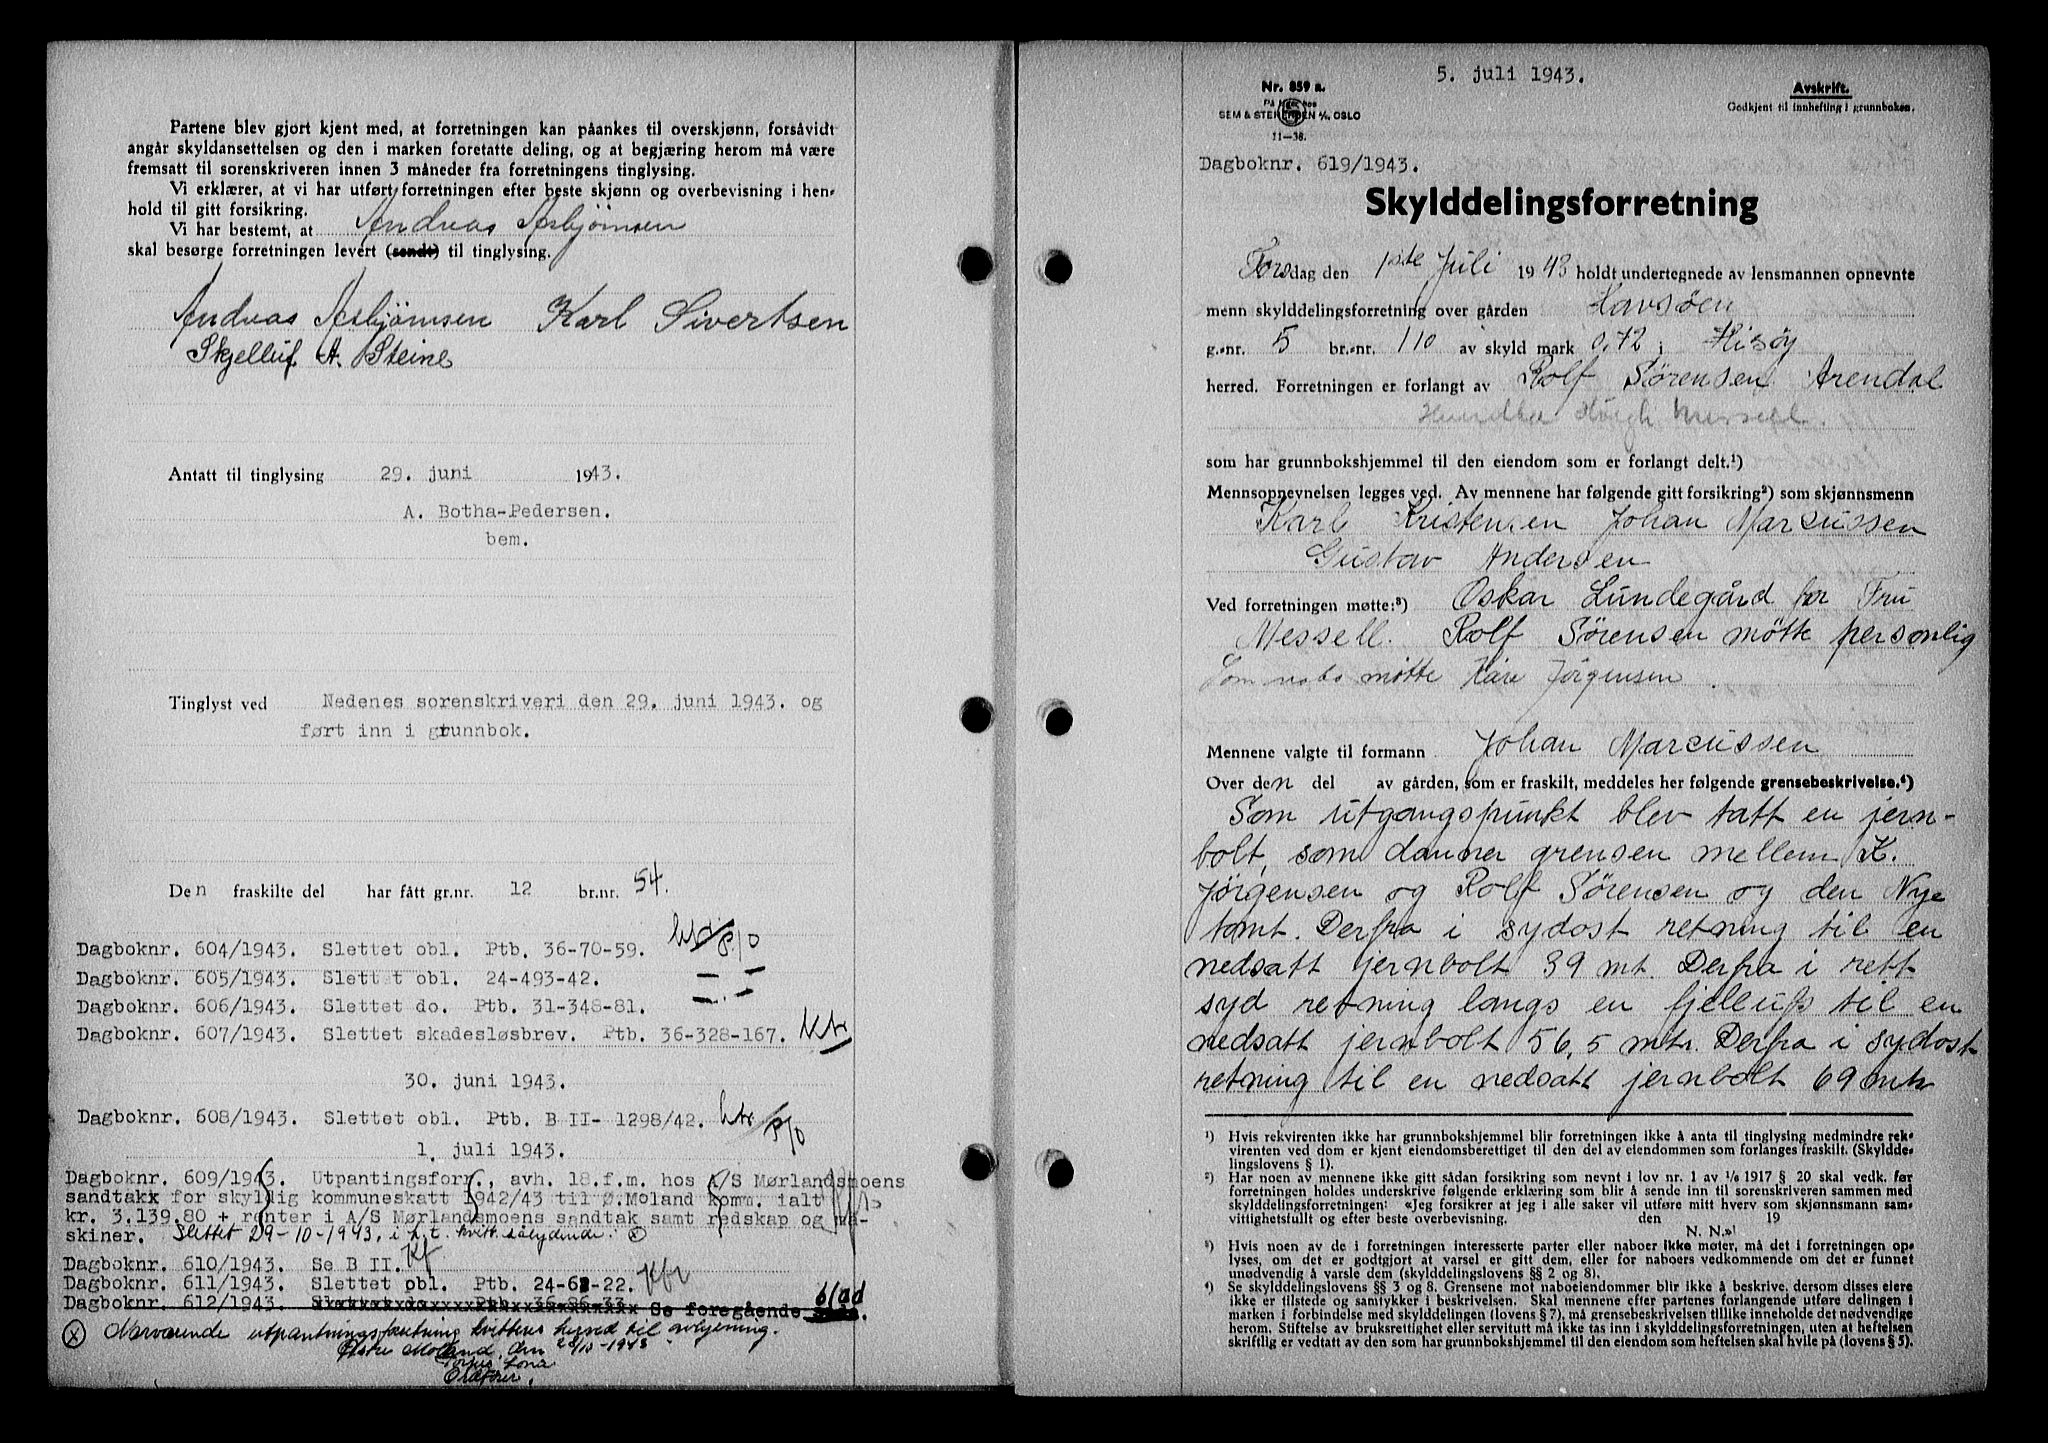 Partene blev gjort kjent med, at forretningen kan påankes til overskjønn, forsåvidt
angår skyldansettelsen og den i marken foretatte deling, og at begjæring herom må være
fremsatt til sorenskriveren innen 3 måneder fra forretningens tinglysing.
Vi erklærer, at vi har utført forretningen efter beste skjønn og overbevisning i hen-
hold til gitt forsikring.
Vi har bestemt, at Andreas Asbjørnsen
skal besørge forretningen levert (sendt) til tinglysing.
Andreas Asbjørnsen Karl Sivertsen
Skjelluf A. Steine
Antatt til tinglysing 29. juni 1943.
A. Botha-Pedersen.
bem.
Tinglyst ved Nedenes sorenskriveri den 29. juni 1943. og
ført inn i grunnbok.
Den fraskilte del har fått gr.nr. 12 br.nr. 54.
Dagboknr. 604/1943. Slettet obl. Ptb. 36-70-59.
Dagboknr. 605/1943. Slettet obl. 24-493-42.
Dagboknr. 606/1943. Slettet do. Ptb. 31-348-81.
Dagboknr. 607/1943. Slettet skadesløsbrev. Ptb. 36-328-167.
30. juni 1943.
Dagboknr. 608/1943. Slettet obl. Ptb. B II- 1298/42.
1. juli 1943.
Dagboknr. 609/1943. Utpantingsforr., avh. 18.f.m. hos A/S Mørlandsmoens
sandtakx for skyldig kommuneskatt 1942/43 til Ø.Moland komm. ialt
kr. 3.139.80 + renter i A/S Mørlandsmoens sandtak samt redskap og ma-
skiner. Slettet 29-10-1943, i h.t. kvitt. sålydende: (x)
Dagboknr. 610/1943. Se B II. Kf
Dagboknr. 611/1943. Slettet obl. Ptb. 24-62-22.
Dagboknr. 612/1943. Se foregående blad.
(x) Nærværende utpantningsforretning kvitteres herved til avlysning.
Østre Moland, den 28/10-1943

5. juli 1943.
Nr. 859 a.
På lager hos
SEM & STENERSEN A/S, OSLO
11-38.
Avskrift.
Godkjent til innhefting i grunnboken.
Dagboknr. 619/1943.
Skylddelingsforretning
Torsdag den 1ste Juli 1943 holdt undertegnede av lensmannen opnevnte
menn skylddelingsforretning over gården Havsøen
g.-nr. 5 br.-nr. 110 av skyld mark 0,72 i Hisøy
herred. Forretningen er forlangt av Rolf Sørensen Arendal
som har grunnbokshjemmel til den eiendom som er forlangt delt.¹)
Mennsopnevnelsen legges ved. Av mennene har følgende gitt forsikring²) som skjønnsmenn
Karl Kristensen Johan Marcussen
Gustav Andersen
Ved forretningen møtte:³) Oskar Lundegård for Fru
Messell. Rolf Sørensen møtte personlig
Som nabo møtte Kåre Jørgensen.
Mennene valgte til formann Johan Marcussen
Over den del av gården, som er fraskilt, meddeles her følgende grensebeskrivelse.⁴)
Som utgangspunkt blev tatt en jern-
bolt, som danner grensen mellem K.
Jörgensen og Rolf Sörensen og den Nye
tomt. Derfra i sydost retning til en
nedsatt jernbolt 39 mt. Derfra i rett
syd retning langs en fjellufs til en
nedsatt jernbolt 56,5 mtr. Derfra i sydost
retning til en nedsatt jernbolt 69 mtr
¹) Hvis rekvirenten ikke har grunnbokshjemmel blir forretningen ikke å anta til tinglysing medmindre rek-
virenten ved dom er kjent eiendomsberettiget til den del av eiendommen som forlanges fraskilt. (Skyldde-
lingslovens § 1).
²) Har noen av mennene ikke gitt sådan forsikring som nevnt i lov nr. 1 av 1/6 1917 § 20 skal vedk. før
forretningen holdes underskrive følgende erklæring som blir å sende inn til sorenskriveren sammen med
skylddelingsforretningen: «Jeg forsikrer at jeg i alle saker vil utføre mitt hverv som skjønnsmann sam-
vittighetsfullt og efter beste overbevisning. den 19
N. N.»
³) Hvis noen av de i forretningen interesserte parter eller naboer ikke møter, må det i forretningen op-
lyses, om det er godtgjort at varsel er gitt dem, eller for naboers vedkommende om det er funnet
unødvendig å varsle dem (skylddelingslovens §§ 2 og 8).
⁴) Se skylddelingslovens §§ 3 og 8. Grensene mot naboeiendommer blir ikke å beskrive, dersom disses eiere
ikke er tilstede og samtykker i beskrivelsen. Skal mennene efter partenes forlangende utføre delingen i
marken i forbindelse med skylddelingen (lovens § 7), må grensebeskrivelsen tillike inneholde det nødvendige
herom. Stiftelse av bruksrettighet eller servitutt må ikke tas inn i skylddelingsforretningen, uten at heftelsen
skriftlig er vedtatt av den som har grunnbokshjemmel til den eiendom som heftelsen skal hvile på (lovens § 5).